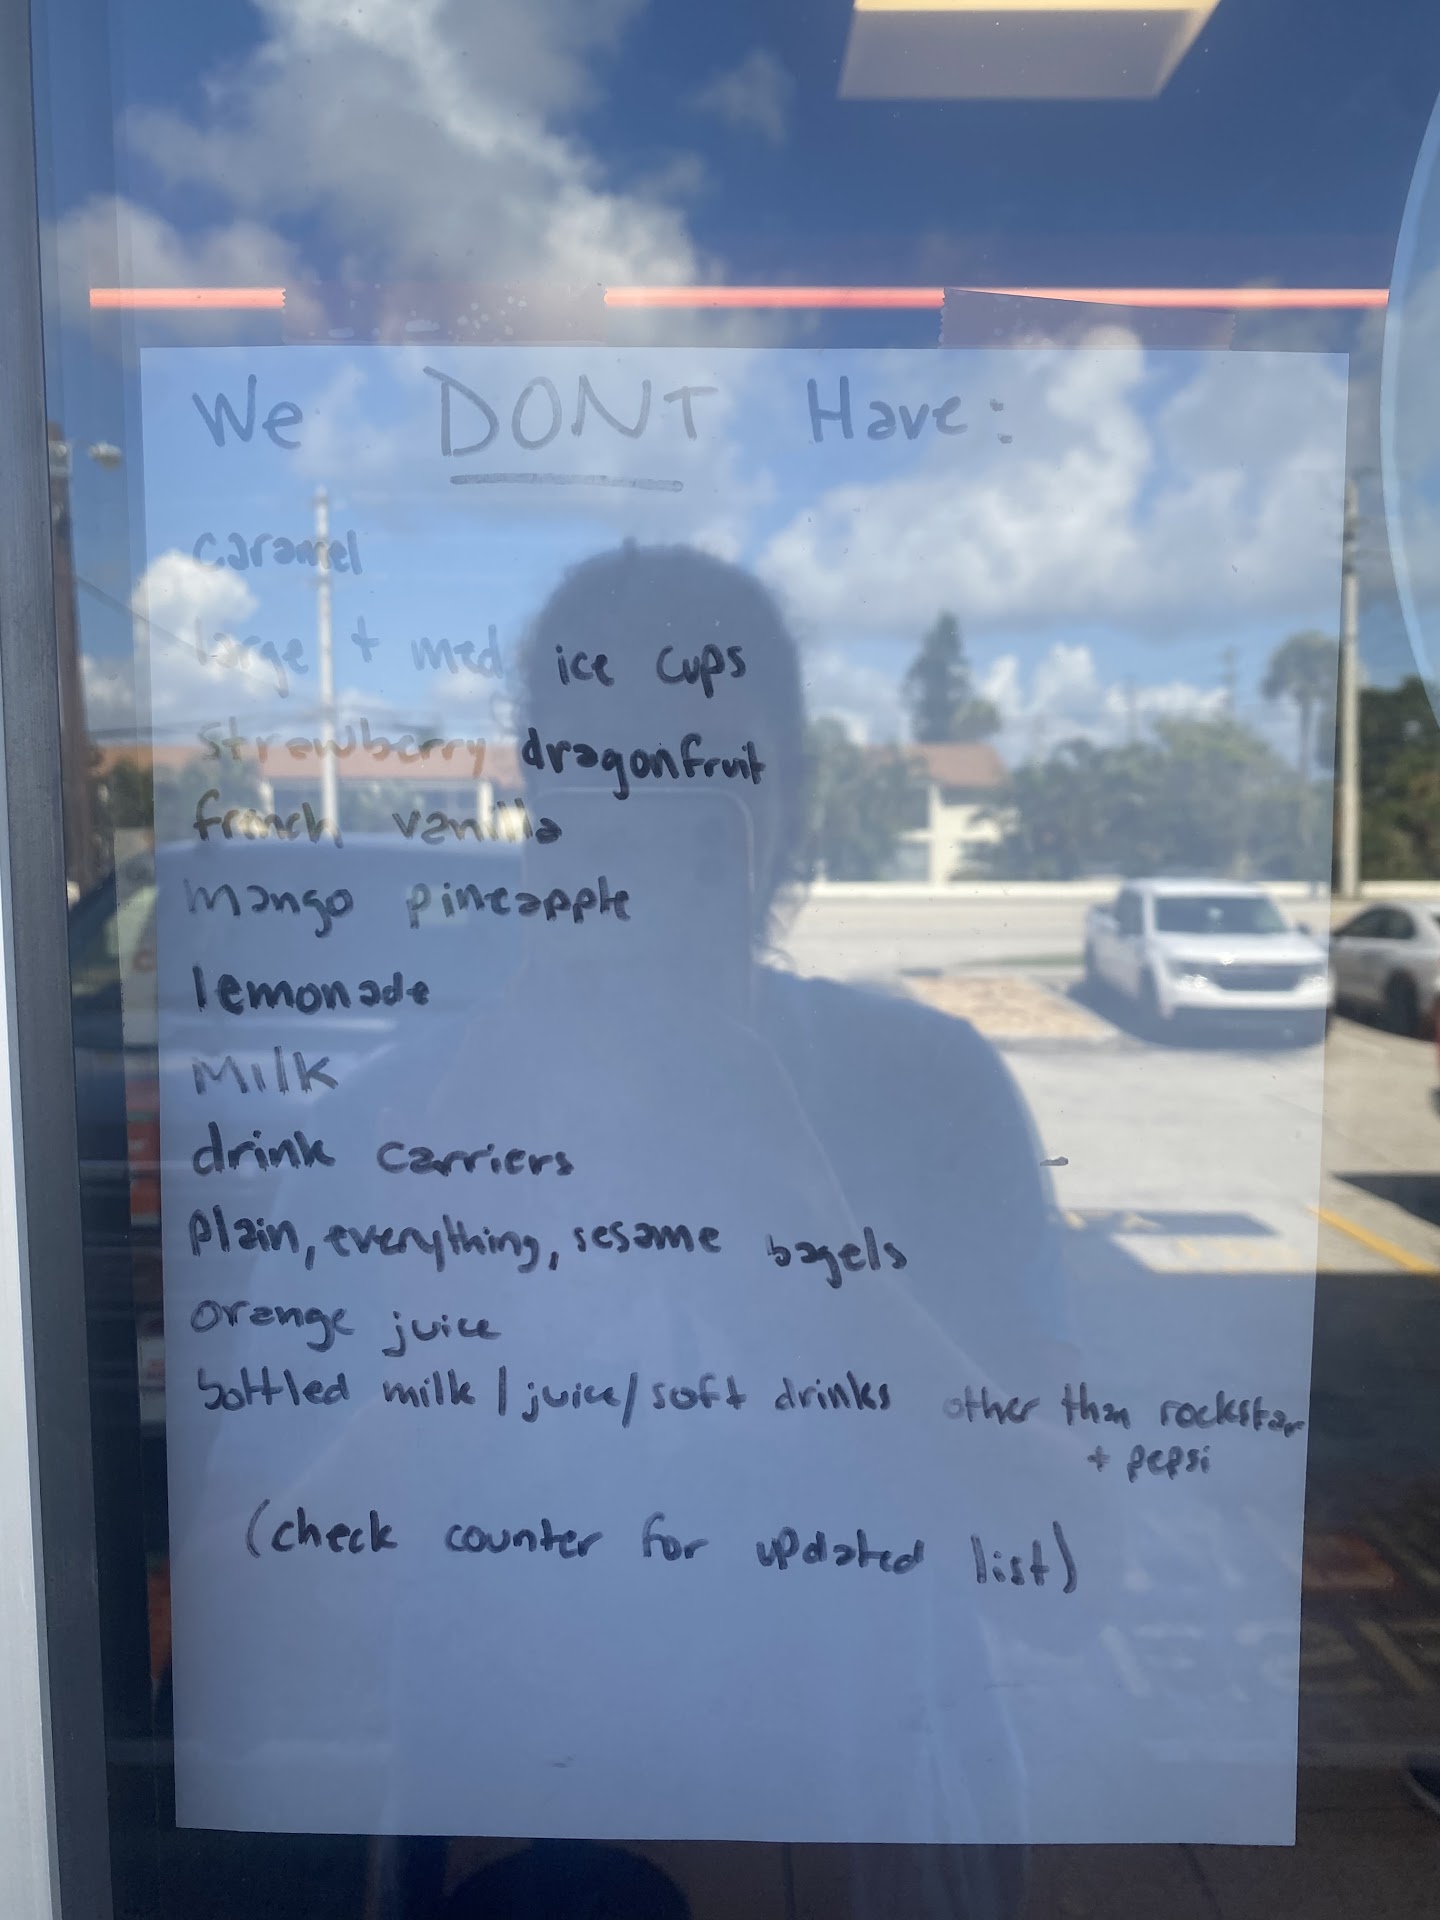 We DONT Have:
caramel
large + med ice cups
strawberry dragonfruit
french vanilla
mango pineapple
lemonade
MilK
drink carriers
Plain, everything, sesame bagels
orange juice
bottled milk / juice / soft drinks other than rockstar
+ pepsi
(check counter for updated list)